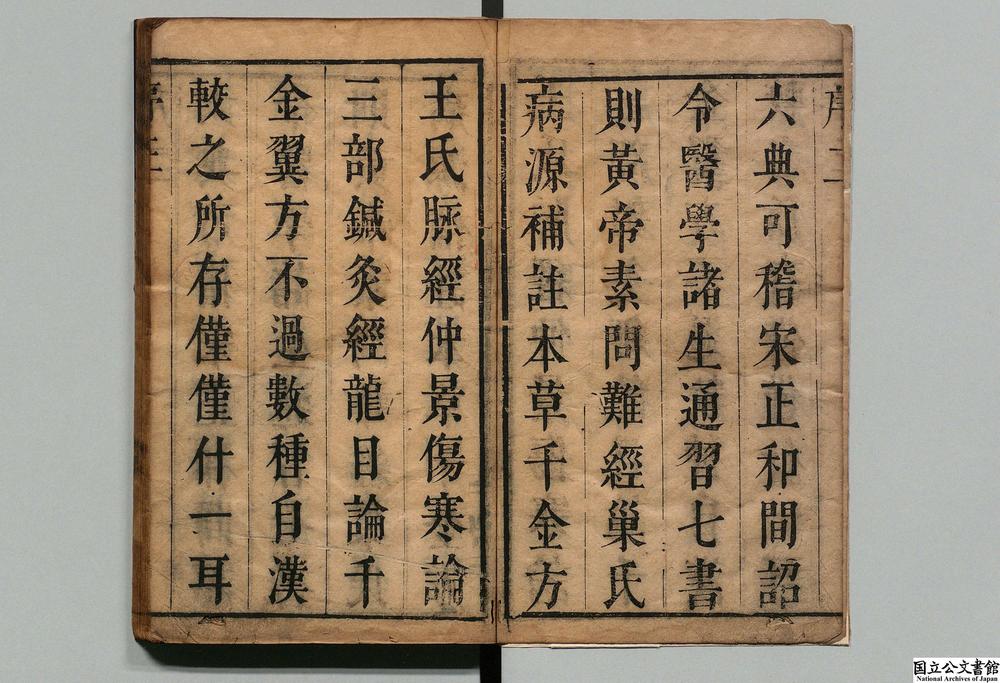 序二
六典可稽宋正和間詔
令醫學諸生通習七書
則黃帝素問難經巢氏
病源補註本草千金方
王氏脉經仲景傷寒論
三部鍼灸經龍目論千
金翼方不過數種自漢
較之所存僅僅什一耳
序三
国立公文書館
National Archives of Japan